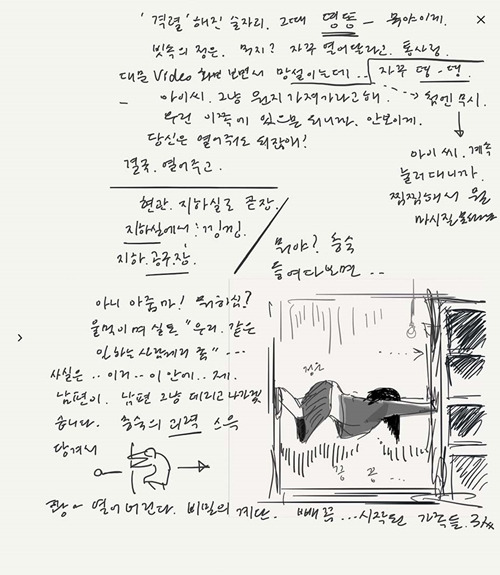 '격렬'해진 술자리. 그때 띵똥 — 뭐야 이게.
빗속의 정은. 뭐지? 자꾸 열어달라고. 통사정.
대문 Video 화면 보면서 망설이는데.. 자꾸 띵-띵.
아이씨. 그냥 뭔지 가져가라고 해. 첨엔 무시.
우린 이쪽에 있으면 되니까. 안보이게.
당신은 열어줘도 되잖애!
결국. 열어주고.
아이 씨. 계속
눌러대니까.
찜찜해서 뭘
마시질
현관. 지하실로 곧장.
지하실에서: 낑낑.
지하. 공구장.
뭐야? 충숙
들여다보면 ..
아니 아줌마! 뭐하심?
울먹이며 실토 "우리. 같은
일하는 사람에게 좀" ---
사실은 .. 이거 .. 이 안에 .. 제.
남편이. 남편 그냥 데리고 나가겠
습니다. 충숙의 괴력 스윽
당겨서
정은
끙 끙 ..
쾅~ 열어버린다. 비밀의 계단. 빼꼭 ... 시작된 가족들.